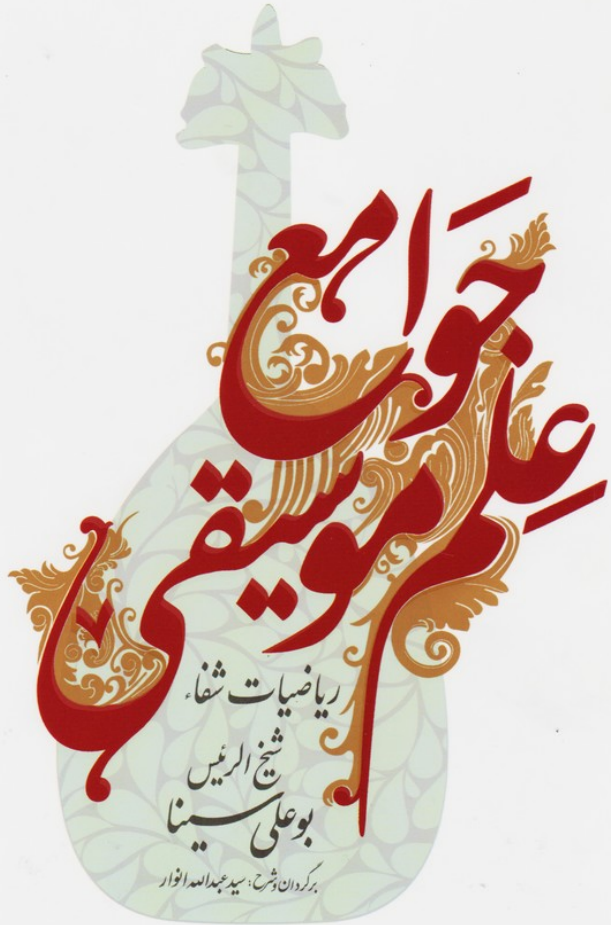 جَوامع
عِلم موسیقی
ریاضیات شفاء
شیخ الرئیس
بوعلی سینا
برگردان و شرح: سید عبدالله انوار